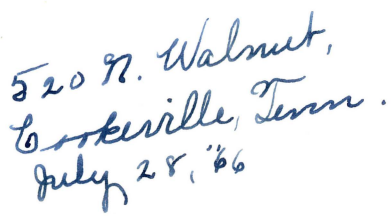 520 N. Walnut,
Cookeville, Tenn.
July 28, "66